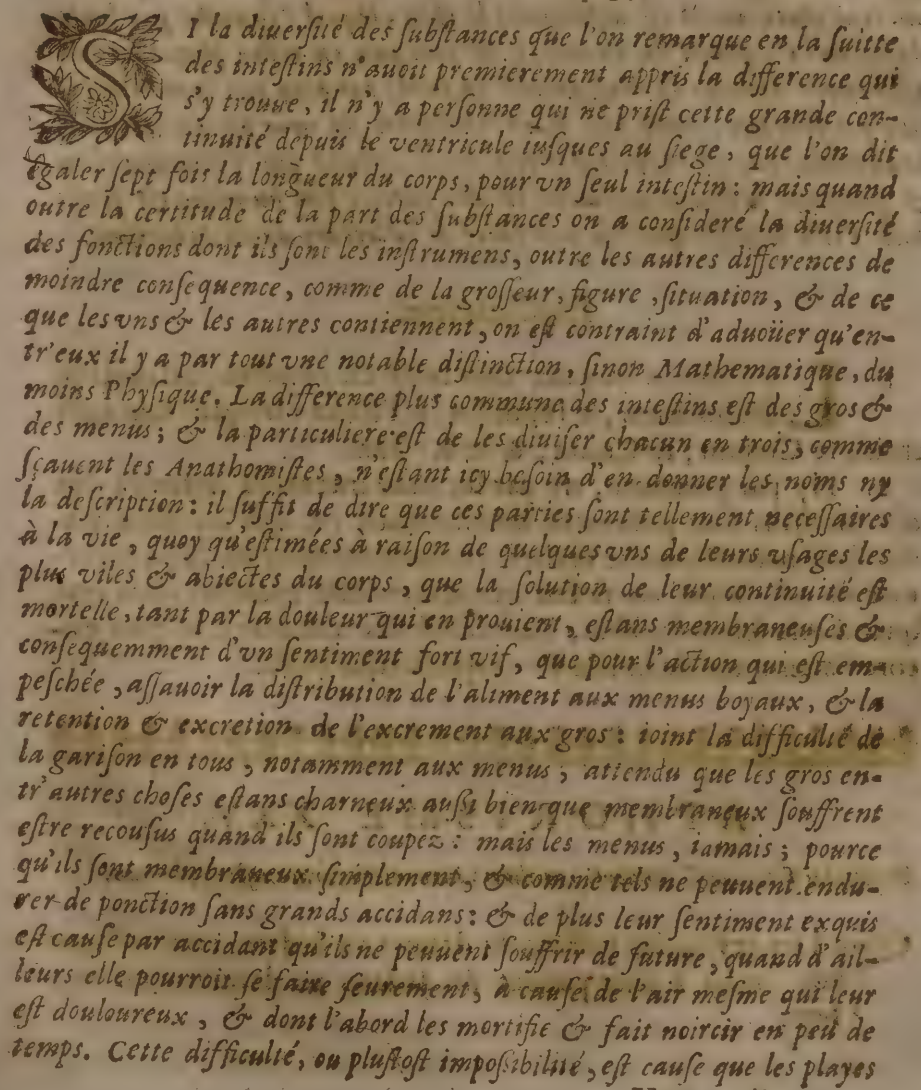 SI la diuersité des substances que l'on remarque en la suitte
des intestins n'auoit premierement appris la difference qui
s'y trouue, il n'y a personne qui ne prist cette grande con-
tinuité depuis le ventricule iusques au siege, que l'on dit
égaler sept fois la longueur du corps, pour vn seul intestin : mais quand
outre la certitude de la part des substances on a consideré la diuersité
des fonctions dont ils sont les instrumens, outre les autres differences de
moindre consequence, comme de la grosseur, figure, situation, & de ce
que les vns & les autres contiennent, on est contraint d'aduoüer qu'en-
tr'eux il y a par tout vne notable distinction, sinon Mathematique, du
moins Physique. La difference plus commune des intestins est des gros &
des menus ; & la particuliere est de les diuiser chacun en trois, comme
sçauent les Anathomistes, n'estant icy besoin d'en donner les noms ny
la description : il suffit de dire que ces parties sont tellement necessaires
à la vie, quoy qu'estimées à raison de quelques vns de leurs vsages les
plus viles & abiectes du corps, que la solution de leur continuité est
mortelle, tant par la douleur qui en prouient, estans membraneuses &
consequemment d'vn sentiment fort vif, que pour l'action qui est em-
peschée, assauoir la distribution de l'aliment aux menus boyaux, & la
retention & excretion de l'excrement aux gros : ioint la difficulté de
la garison en tous, notamment aux menus, attendu que les gros en-
tr'autres choses estans charneux aussi bien que membraneux souffrent
estre recousus quand ils sont coupez : mais les menus, iamais ; pource
qu'ils sont membraneux simplement, & comme tels ne peuuent endu-
rer de ponction sans grands accidans : & de plus leur sentiment exquis
est cause par accidant qu'ils ne peuuent souffrir de suture, quand d'ail-
leurs elle pourroit se faire seurement, à cause de l'air mesme qui leur
est douloureux, & dont l'abord les mortifie & fait noircir en peu de
temps. Cette difficulté, ou plustost impossibilité, est cause que les playes